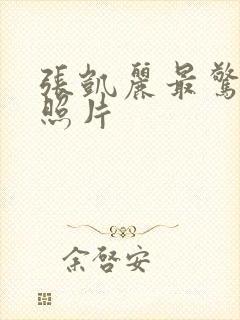 張凱麗最驚
照片
余啓安